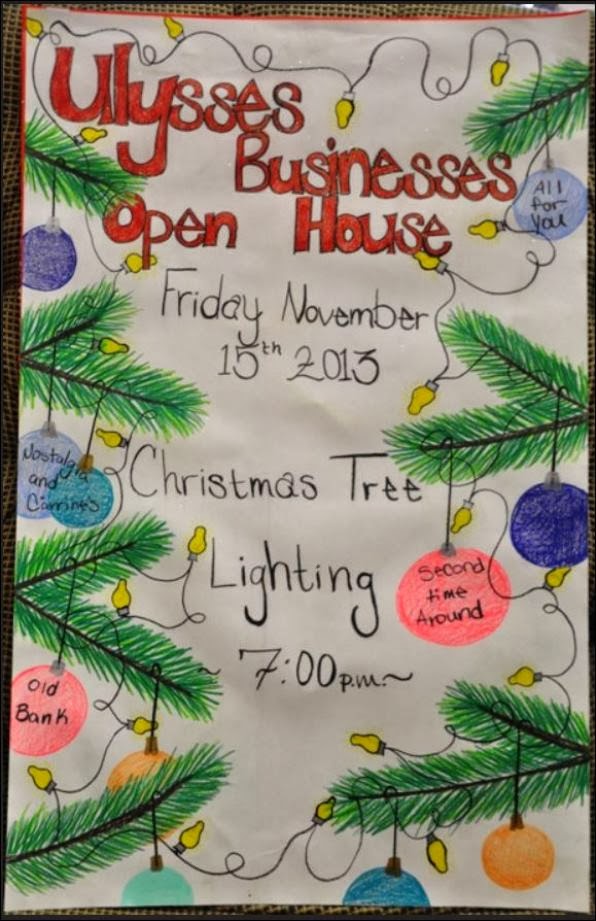 Ulysses
Businesses
Open House
All
for
You
Friday November
15th 2013
Nostalgia
and
Christmas Tree
Lighting
Second
time
Around
~ 7:00 p.m. ~
Old
Bank